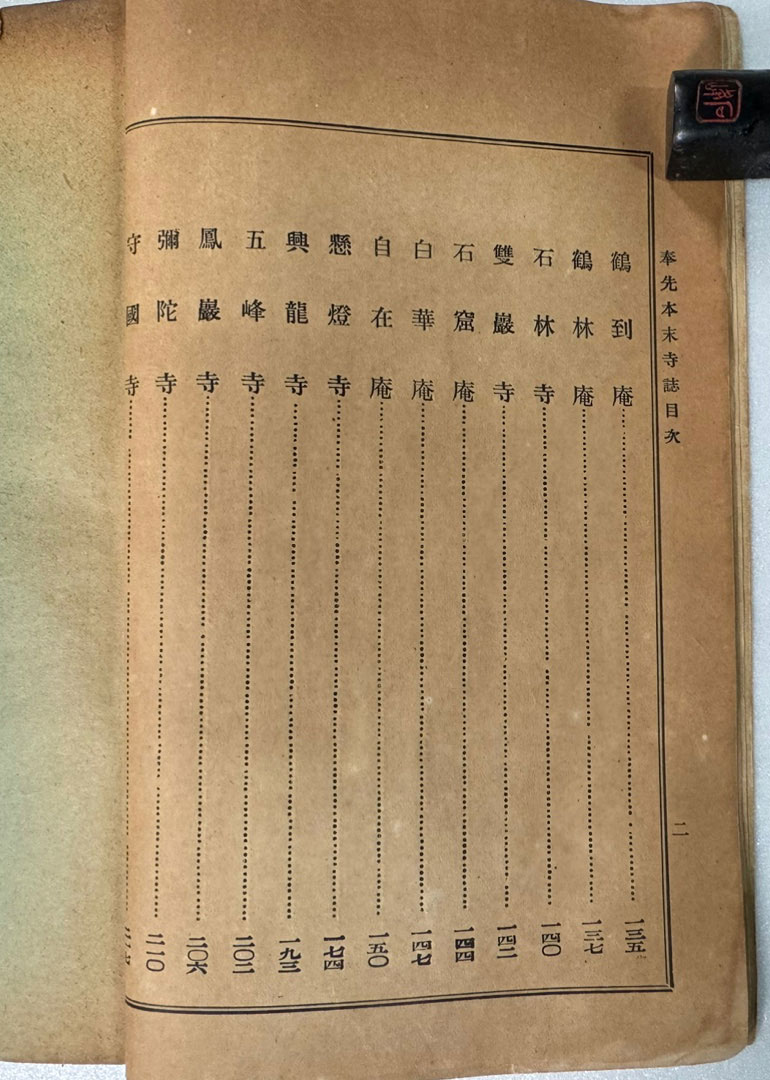 奉先本末寺誌目次 二
鶴到庵……一三五
鶴林庵……一三七
石林寺……一四〇
雙巖寺……一四二
石窟庵……一四四
白華庵……一四七
自在庵……一五〇
懸燈寺……一七四
興龍寺……一九三
五峰寺……二〇二
鳳巖寺……二〇六
彌陀寺……二一〇
守國寺……